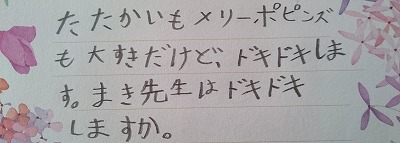 たたかいもメリーポピンズ
も大すきだけど、ドキドキしま
す。まき先生はドキドキ
しますか。